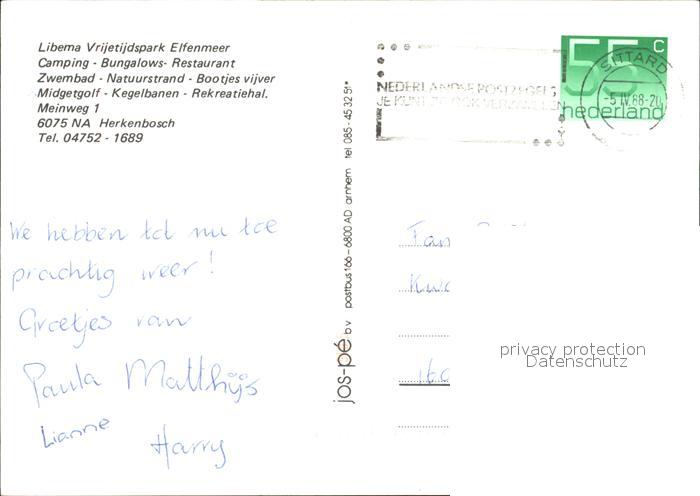 Libema Vrijetijdspark Elfenmeer
Camping - Bungalows- Restaurant
Zwembad - Natuurstrand - Bootjes vijver
Midgetgolf - Kegelbanen - Rekreatiehal.
Meinweg 1
6075 NA Herkenbosch
Tel. 04752 - 1689
We hebben tot nu toe
prachtig weer!
Groetjes van
Paula Matthijs
Lianne
Harry
jos-pé b.v. postbus 166 – 6800 AD arnhem tel. 085 - 45 32 51*
NEDERLANDSE POSTZEGELS
JE KUNT ZE OOK VERZAMELEN
55 c
nederland
SITTARD
-5 IV.88-20
Fam
160
privacy protection
Datenschutz